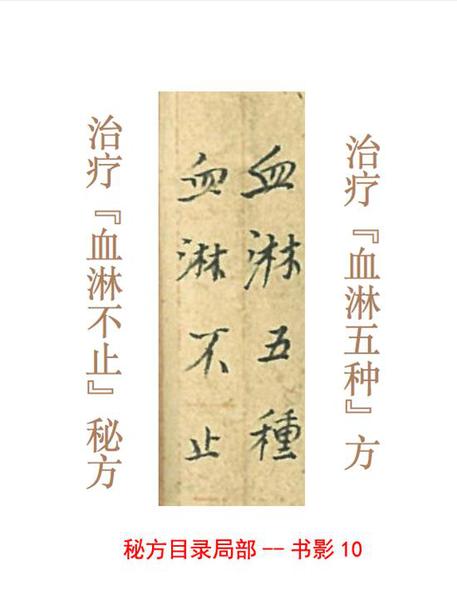 治疗『血淋五种』方
血淋五種
血淋不止
治疗『血淋不止』秘方
秘方目录局部 -- 书影 10